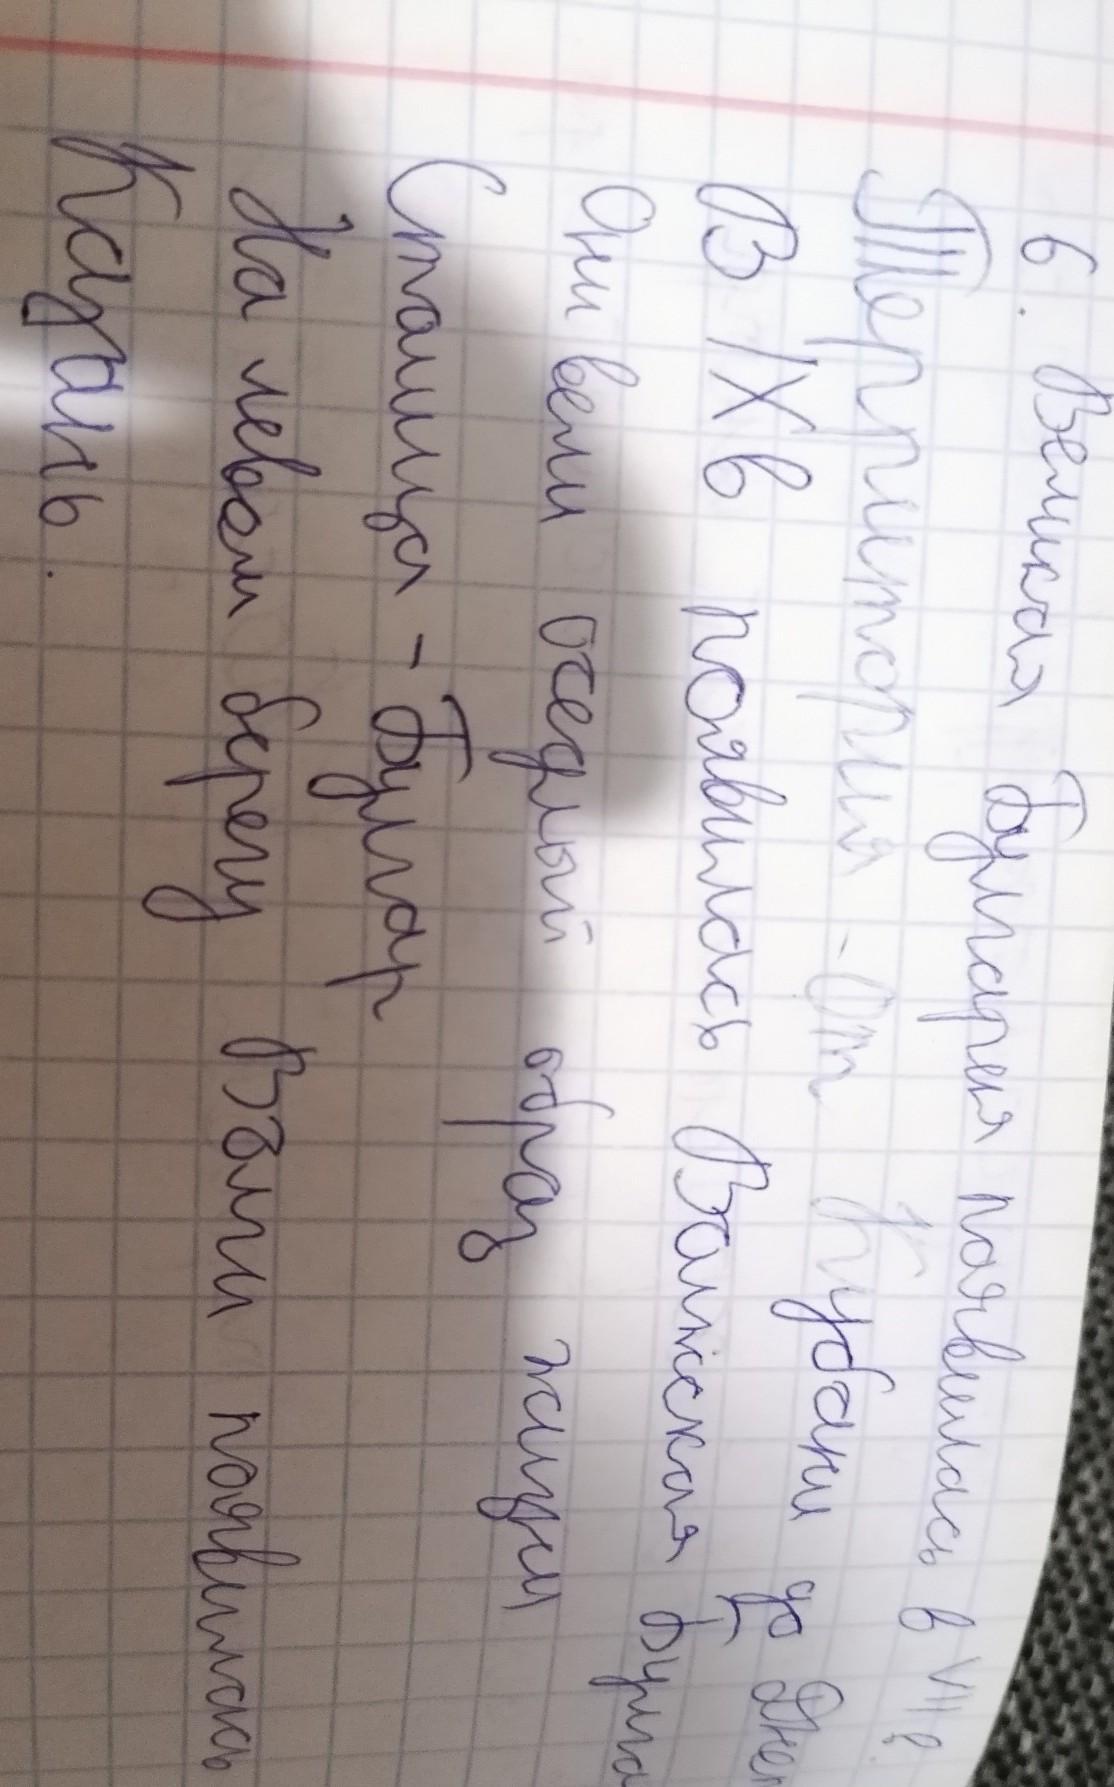 6. Великая Булгария появилась в VII в.
Территория - От Кубани до Днеп
В IX в появилась Волжская Булга
Они вели оседлый образ жизни
Столица - Булгар
На левом берегу Волги появилась
Казань.